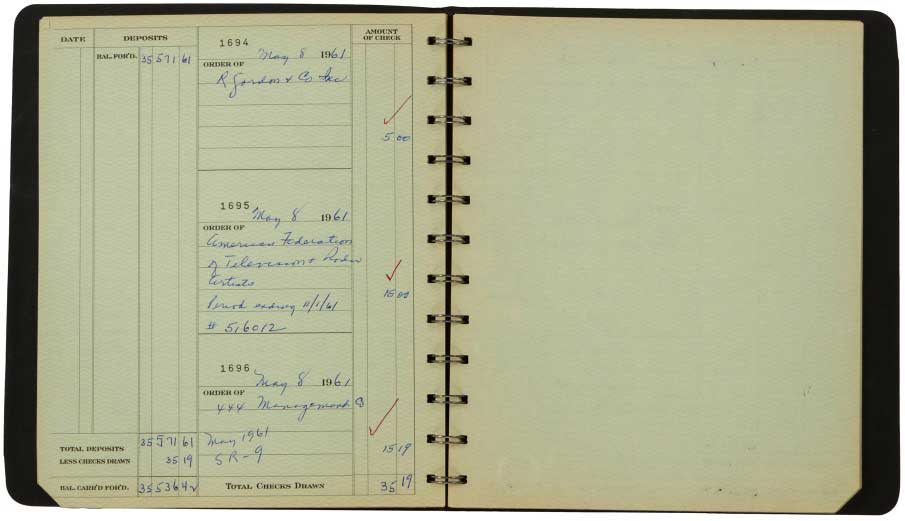 DATE DEPOSITS AMOUNT OF CHECK
BAL. FOR'D. 35571 61
1694
May 8 1961
ORDER OF
R Gordon & Co Inc
5 00
1695
May 8 1961
ORDER OF
American Federation
of Television & Radio
Artists
15 00
Period ending 11/1/61
# 516012
1696
May 8 1961
ORDER OF
444 Management Co
TOTAL DEPOSITS 35571 61
May 1961
15 19
LESS CHECKS DRAWN 35 19
SR-9
BAL. CARR'D FOR'D. 35536 42
TOTAL CHECKS DRAWN 35 19